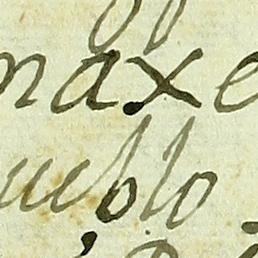 naxe
ueblo